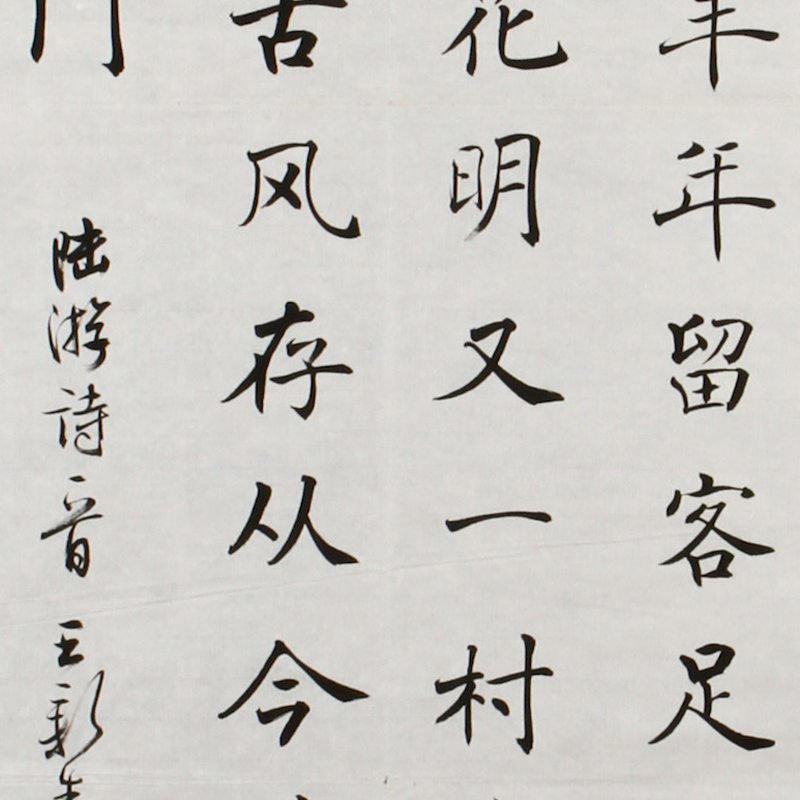 丰年留客足
花明又一村
古风存从今
门
陆游诗一首 王